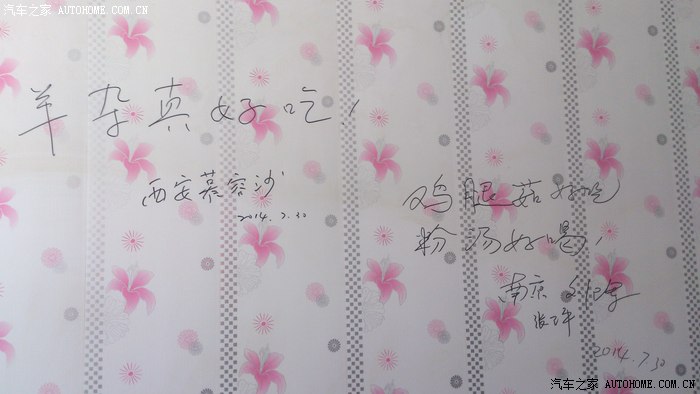 汽车之家 AUTOHOME.COM.CN
羊杂真好吃！
西安慕容沙
2014.7.30
鸡腿菇好吃
粉汤好喝！
南京
2014.7.30
汽车之家 AUTOHOME.COM.CN